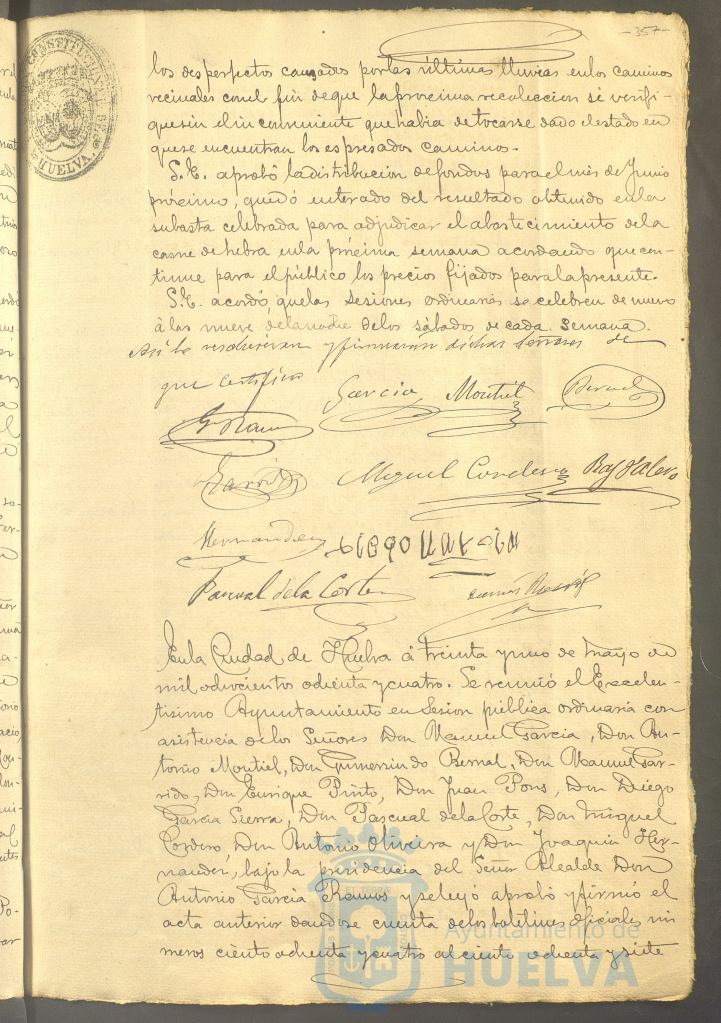 -357-
CONSTITUCIONAL
HUELVA.
los desperfectos causados por las últimas lluvias en los caminos
vecinales con el fin de que la procsima recoleccion se verifi-
que sin el inconveniente que habia de tocarse dado el estado en
que se encuentran los espresados caminos.
S.E. aprobó la distribucion de fondos para el mes de Junio
próximo, quedó enterado del resultado obtenido en la
subasta celebrada para adjudicar el abastecimiento de la
carne de hebra en la próxima semana acordando que con-
tinue para el público los precios fijados para la presente.
S.E. acordó, que las sesiones ordinarias se celebren de nuevo
á las nueve de la noche de los sábados de cada semana.
Asi lo resolvieron y firmarán dichos Señores de
que certifico
Garcia Montiel Bernal
G Ramos
Garrido Miguel Cordero
Hernandez Diego Garcia
Pascual de la Corte
En la Ciudad de Huelva á treinta y uno de Mayo de
mil ochocientos ochenta y cuatro. Se reunió el Excelen-
tisimo Ayuntamiento en Sesion pública ordinaria con
asistencia de los Señores Don Manuel Garcia, Don An-
tonio Montiel, Don Gumersindo Bernal, Don Manuel Gar-
rido, Don Enrique Pinto, Don Juan Pons, Don Diego
Garcia Sierra, Don Pascual de la Corte, Don Miguel
Cordero, Don Antonio Oliveira y Don Joaquin Her-
nandez, bajo la presidencia del Señor Alcalde Don
Antonio Garcia Ramos y se leyó aprobó y firmó el
acta anterior dandose cuenta de los boletines oficiales nú
meros ciento ochenta y cuatro al ciento ochenta y siete
Ayuntamiento de
HUELVA